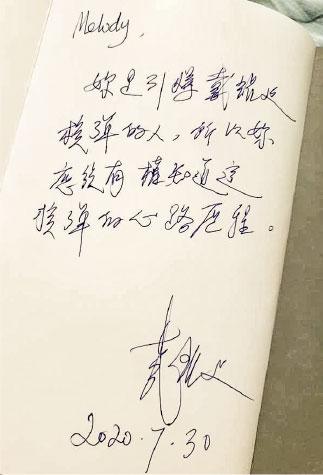 Melody,
妳是引爆戴
核彈的人，所以妳
應該有權知道這
核彈的心路歷程。
2020.7.30